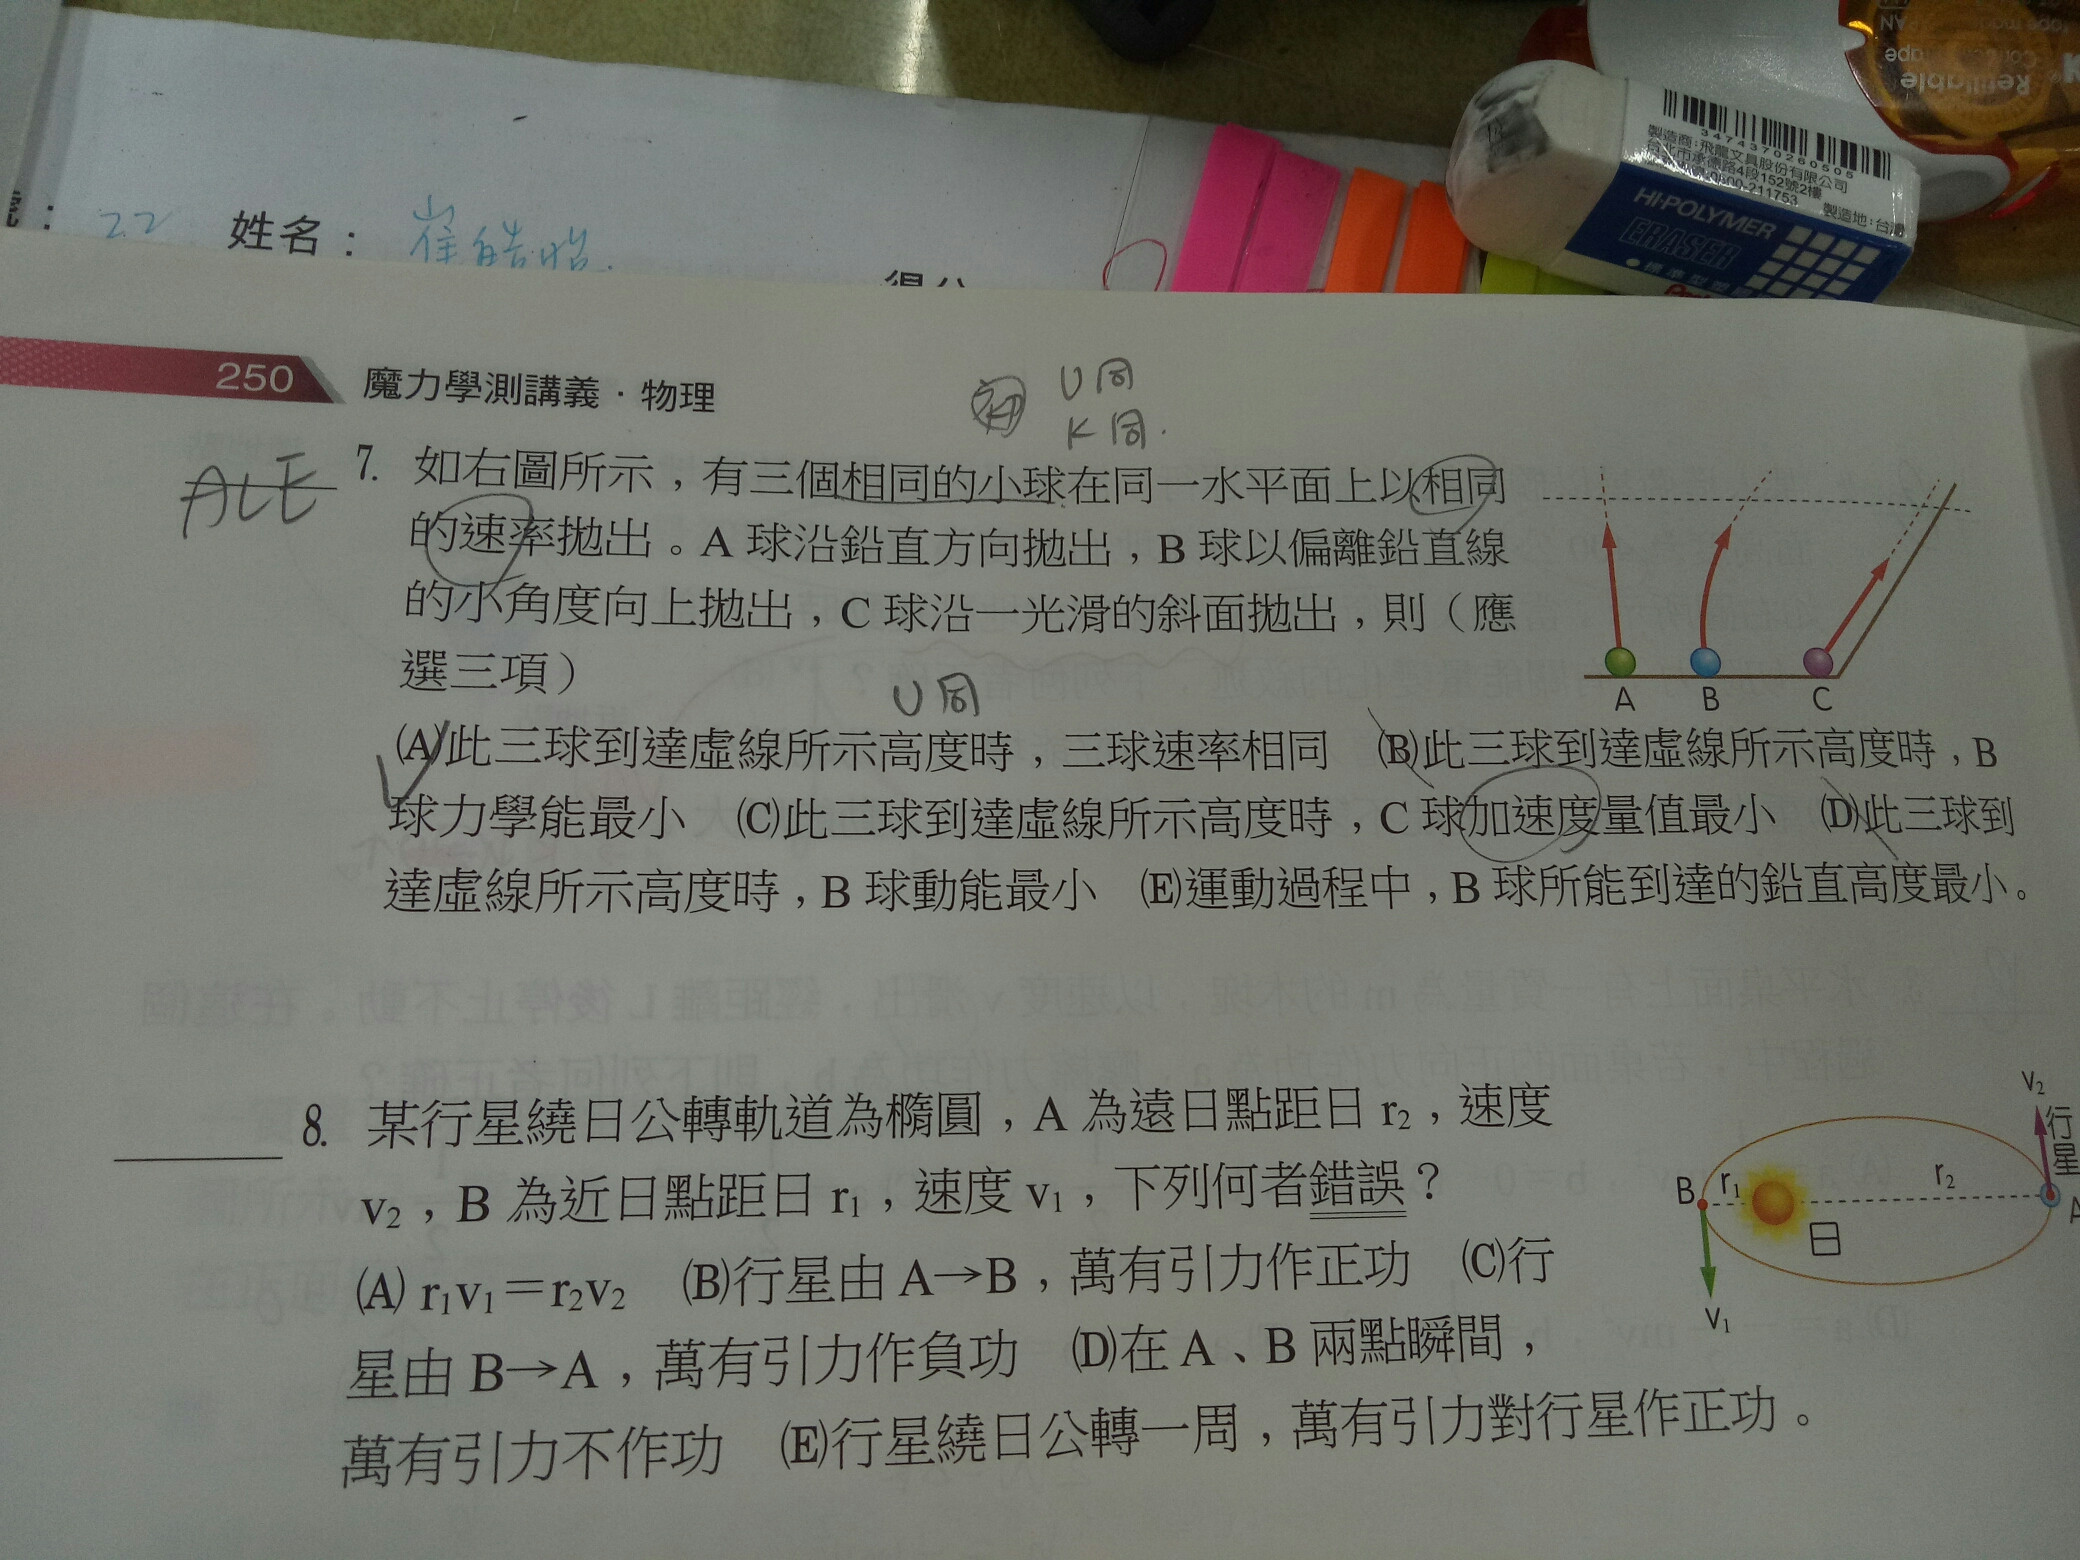 Refillable
製造商:飛龍文具股份有限公司
台北市承德路4段152號2樓
0800-211753
製造地:台
3474370260505
HI-POLYMER
ERASER
22 姓名：
250 魔力學測講義·物理
U同
K同.
ACE
7. 如右圖所示，有三個相同的小球在同一水平面上以相同
的速率拋出。A 球沿鉛直方向拋出，B 球以偏離鉛直線
的小角度向上拋出，C 球沿一光滑的斜面拋出，則（應
選三項）
A B C
U同
(A)此三球到達虛線所示高度時，三球速率相同 (B)此三球到達虛線所示高度時，B
球力學能最小 (C)此三球到達虛線所示高度時，C 球加速度量值最小 (D)此三球到
達虛線所示高度時，B 球動能最小 (E)運動過程中，B 球所能到達的鉛直高度最小。
8. 某行星繞日公轉軌道為橢圓，A 為遠日點距日 r₂，速度
v₂，B 為近日點距日 r₁，速度 v₁，下列何者錯誤？
(A) r₁v₁＝r₂v₂ (B)行星由 A→B，萬有引力作正功 (C)行
星由 B→A，萬有引力作負功 (D)在 A、B 兩點瞬間，
萬有引力不作功 (E)行星繞日公轉一周，萬有引力對行星作正功。
v₂
行星
B r₁ r₂ A
日
v₁